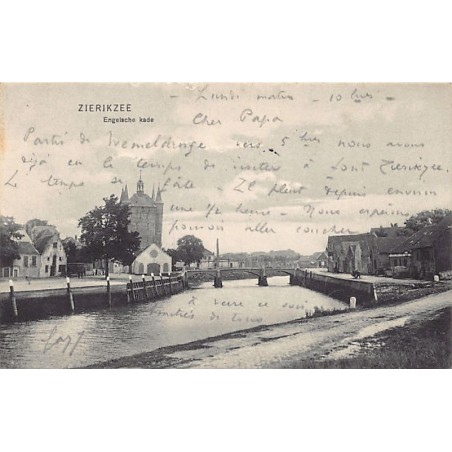 ZIERIKZEE
Engelsche kade
Lundi matin - 10 hrs -
Cher Papa
Partis de Wemeldinge vers 5 hrs nous avons
déjà eu le temps de visiter à tout Zierikzee.
Le temps se gâte - Il pleut depuis environ
une 1/2 heure - Nous espérons
pouvoir aller
à Veere ce soir
de tous